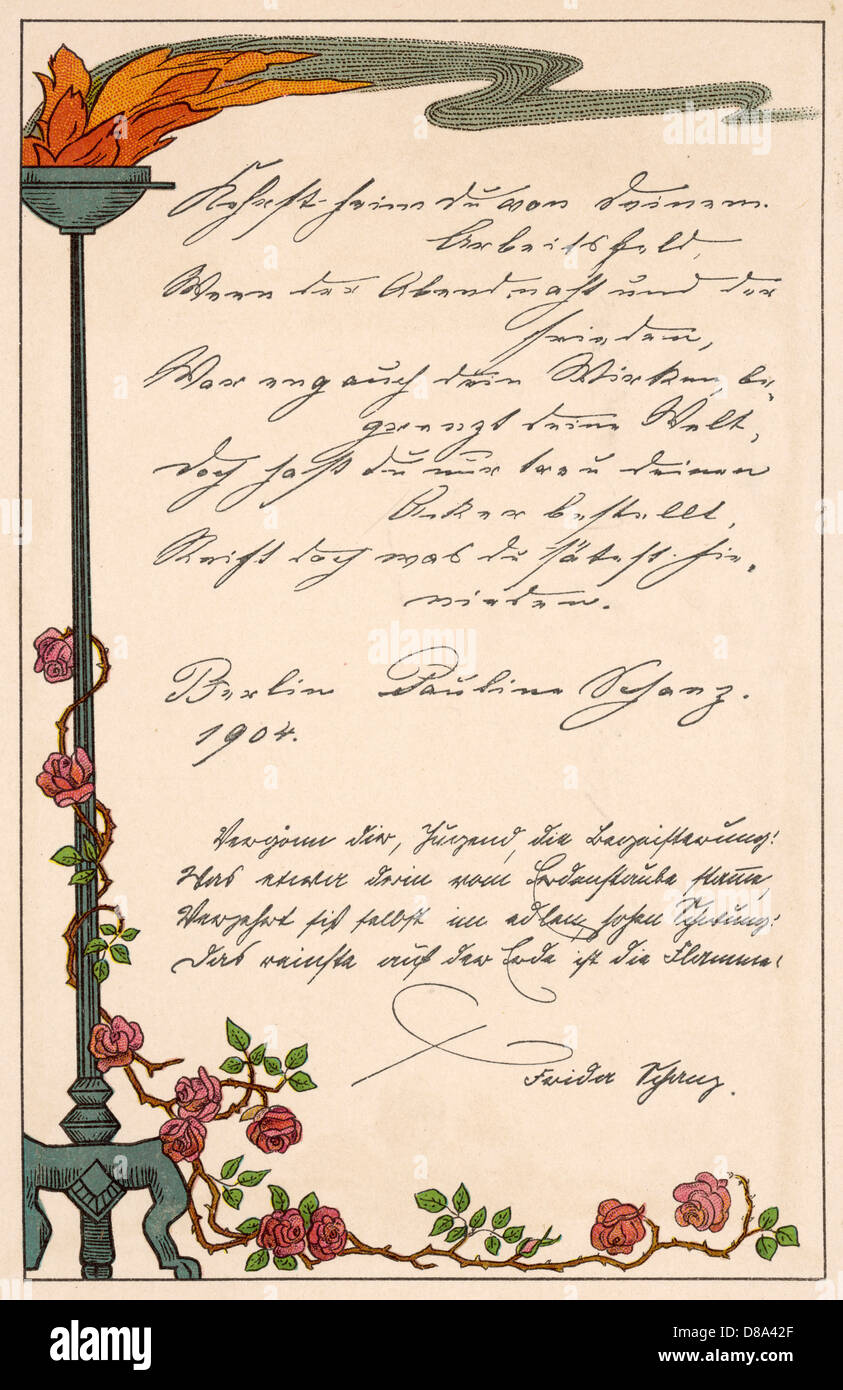 Kehrst heim du von deinem
Arbeitsfeld,
Wenn der Abend naht und der
Frieden,
War eng auch dein Wirken, be-
grenzt deine Welt,
Doch hast du nur treu deinen
Acker bestellt,
Reift doch was du sätest hie-
nieden.
Berlin Pauline Schanz.
1904.
Vergönn dir, Jugend, die Begeisterung!
Was etwa drin vom Erdenstaube stamme,
Verzehrt sich selbst im edlen, hohen Schwung:
Das reinste auf der Erde ist die Flamme!
Frida Schanz.
alamy
alamy
Image ID: D8A42F
www.alamy.com